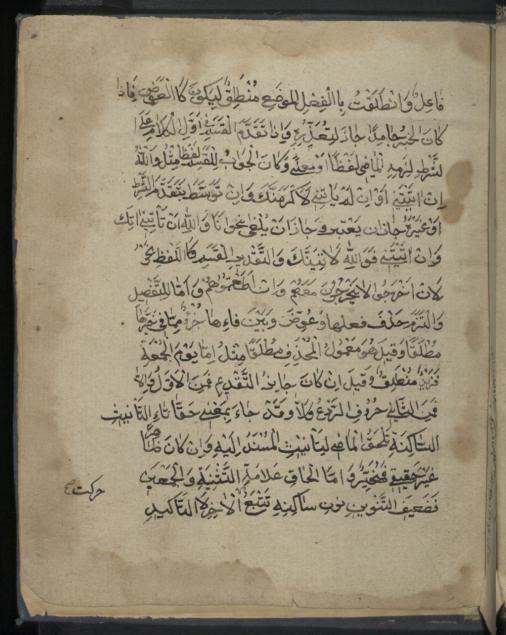 فاعل وانطلقت بالفعل لموضع منطلق ليكون كالعوض فاذا
كان الخبر جامدا جاز لتعذره واذا تقدم القسم اول الكلام على
الشرط لزمه الماضي لفظا او معنى وكان الجواب للقسم لفظا مثل والله
ان اتيتني او ان لم تأتني لاكرمتك وان توسط بتقدم الشرط
او غيره جاز ان يعتبر وجاز ان يلغى نحو انا والله ان تأتني اتك
وان اتيتني فوالله لاتينك والتقدير القسم كاللفظ نحو
لئن اخرجوا لا يخرجون معهم وان اطعتموهم واما للتفصيل
والتزم حذف فعلها وعوض وبين فاءها جزء مما في حيزها
مطلقا وقيل هو معمول المحذوف مطلقا مثل اما يوم الجمعة
فزيد منطلق وقيل ان كان جايز التقديم فمن الاول والا
فمن الثاني حروف الردع كلا وقد جاء بمعنى حقا تاء التأنيث
الساكنة تلحق الماضي لتأنيث المسند اليه فان كان ظاهرا
غير حقيقي فمخير واما الحاق علامة التثنية والجمعين
فضعيف التنوين نون ساكنة تتبع الاخر لا لتأكيد
حركت